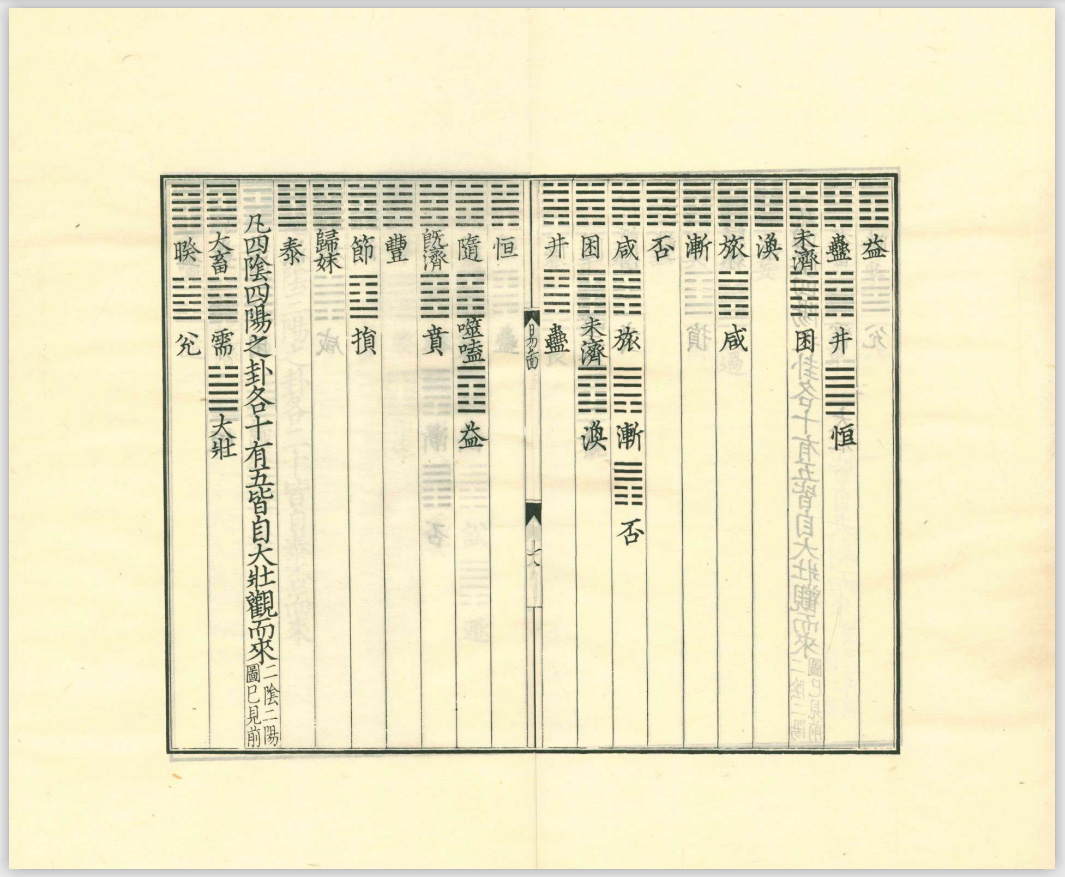 益
蠱 井 恒
未濟 困
渙
旅 咸
漸
否
咸 旅 漸 否
困 未濟 渙
井 蠱
易面
十八
恒
隨 噬嗑 益
既濟 賁
豐
節 損
歸妹
泰
凡四陰四陽之卦各十有五皆自大壯觀而來
二陰二陽
圖已見前
大畜 需 大壯
睽 兊